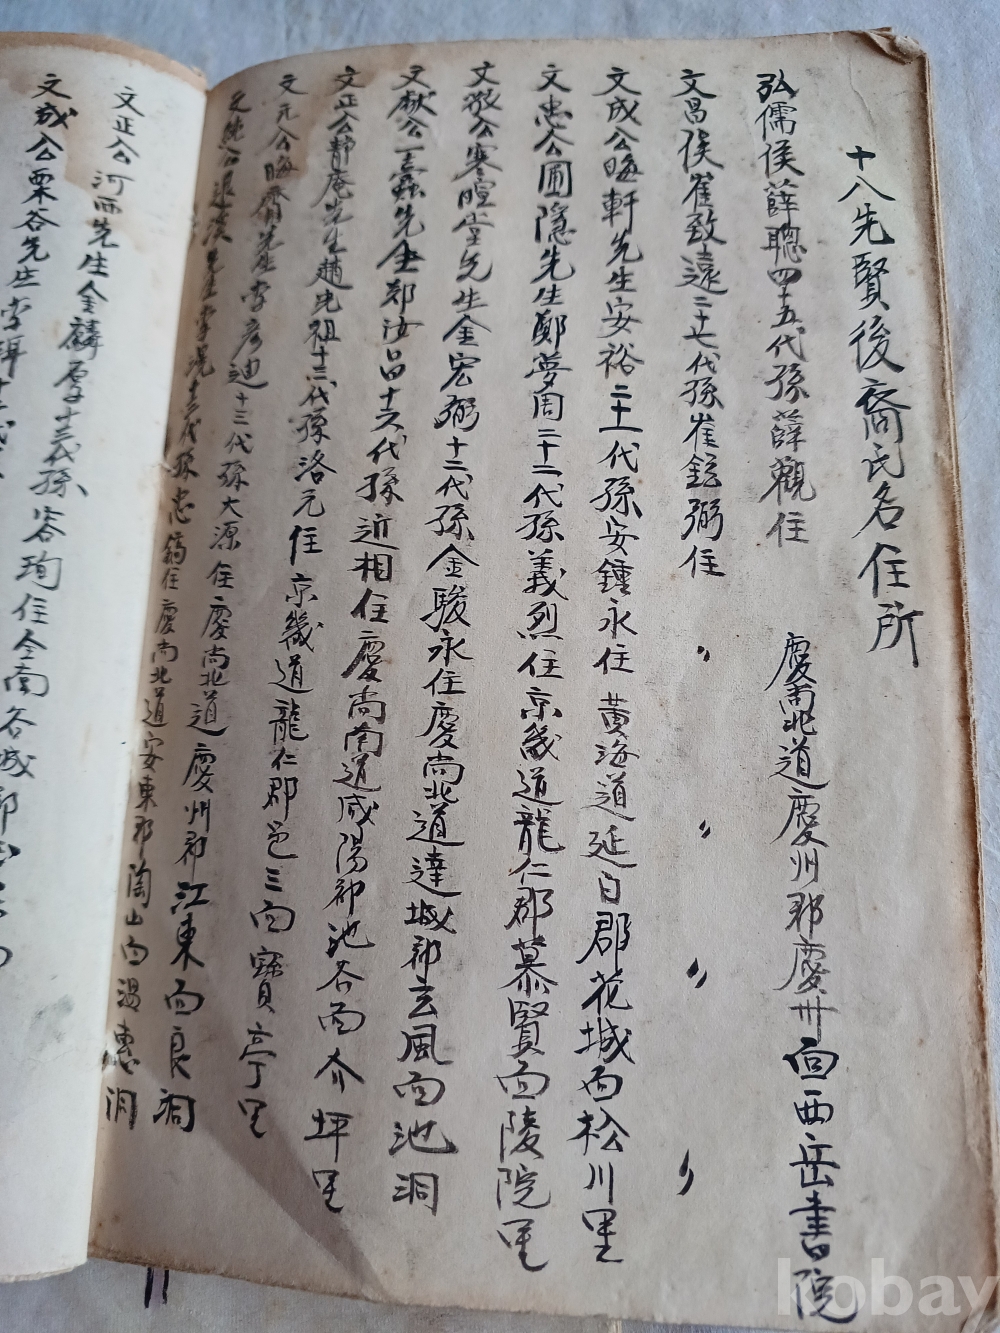 十八先賢後裔氏名住所
弘儒侯薛聰四五代孫薛觀住 慶尚北道慶州郡慶州面西岳書院
文昌侯崔致遠二十七代孫崔鉉弼住 〃 〃 〃 〃
文成公晦軒先生安裕二十一代孫安鍾永住 黃海道延白郡花城面松川里
文忠公圃隱先生鄭夢周二十二代孫義烈住京畿道龍仁郡慕賢面陵院里
文敬公寒暄堂先生金宏弼十二代孫金駿永住慶尚北道達城郡玄風面池洞
文獻公一蠹先生鄭汝昌十六代孫近相住慶尚南道咸陽郡池谷面介坪里
文正公靜庵先生趙光祖十三代孫洛元住京畿道龍仁郡邑三面寶亭里
文元公晦齋先生李彦迪十三代孫大源住慶尚北道慶州郡江東面良洞
文純公退溪先生李滉十三代孫忠鎬住慶尚北道安東郡陶山面溫惠洞
文正公河西先生金麟厚十三義孫容珣住全南谷城郡
文成公栗谷先生李珥十
kobay